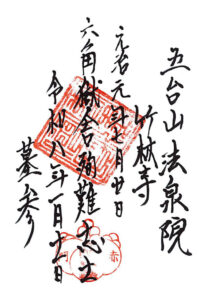 五台山法泉院
竹林寺
元治元年七月廿日
六角獄舎殉難志士
令和八年一月十一日
墓参